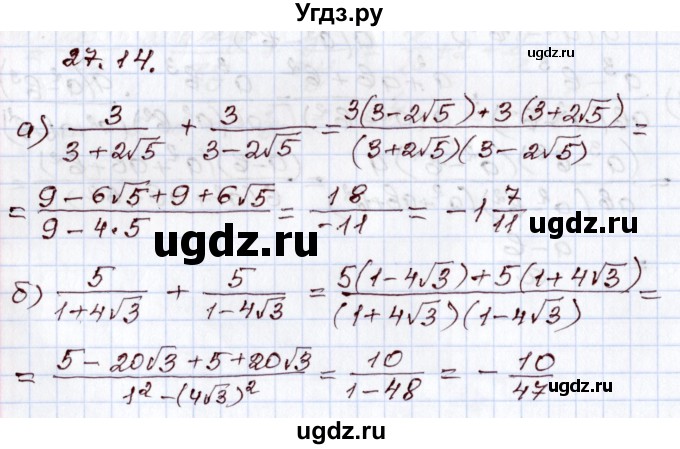 Угдз.ру
ugdz.ru
27.14.
а) 3/(3+2√5) + 3/(3-2√5) = (3(3-2√5)+3(3+2√5))/((3+2√5)(3-2√5)) =
= (9-6√5+9+6√5)/(9-4·5) = 18/-11 = -1 7/11
ugdz.ru
ugdz.ru
ugdz.ru
б) 5/(1+4√3) + 5/(1-4√3) = (5(1-4√3)+5(1+4√3))/((1+4√3)(1-4√3)) =
= (5-20√3+5+20√3)/(1²-(4√3)²) = 10/(1-48) = -10/47
ugdz.ru
ugdz.ru